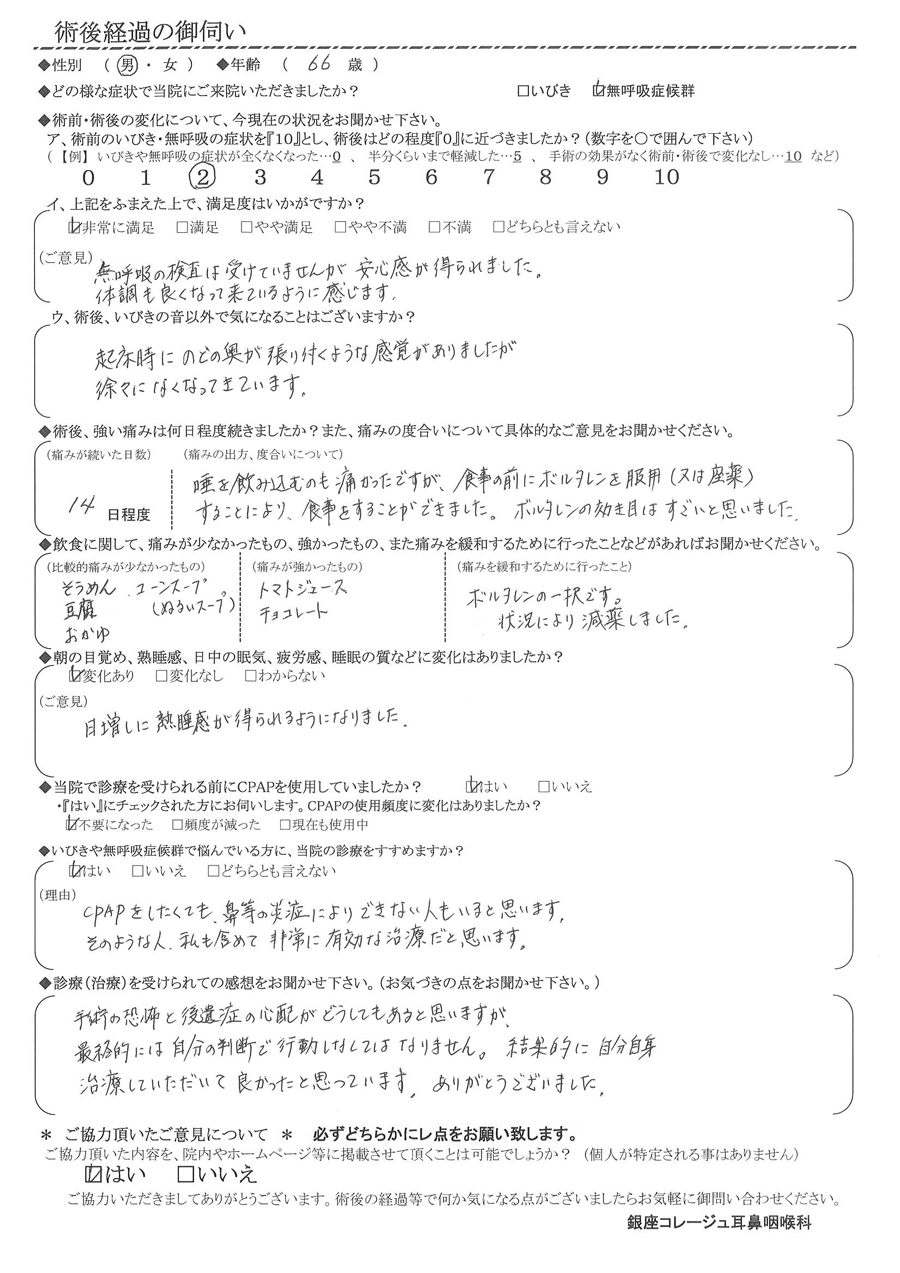 術後経過の御伺い
◆性別 （ 男 ・ 女 ） ◆年齢 （ 66 歳 ）
◆どの様な症状で当院にご来院いただきましたか？ □いびき ☑無呼吸症候群
◆術前・術後の変化について、今現在の状況をお聞かせ下さい。
ア、術前のいびき・無呼吸の症状を『10』とし、術後はどの程度『0』に近づきましたか？（数字を〇で囲んで下さい）
（【例】いびきや無呼吸の症状が全くなくなった…0 、 半分くらいまで軽減した…5 、 手術の効果がなく術前・術後で変化なし…10 など）
0 1 2 3 4 5 6 7 8 9 10
イ、上記をふまえた上で、満足度はいかがですか？
☑非常に満足 □満足 □やや満足 □やや不満 □不満 □どちらとも言えない
（ご意見）
無呼吸の検査は受けていませんが 安心感が得られました。
体調も良くなって来ているように感じます。
ウ、術後、いびきの音以外で気になることはございますか？
起床時に のどの奥が張り付くような感覚がありましたが
徐々になくなってきています。
◆術後、強い痛みは何日程度続きましたか？また、痛みの度合いについて具体的なご意見をお聞かせください。
（痛みが続いた日数） （痛みの出方、度合いについて）
14 日程度
唾を飲み込むのも痛かったですが、食事の前にボルタレンを服用（又は座薬）
することにより、食事をすることができました。 ボルタレンの効き目はすごいと思いました。
◆飲食に関して、痛みが少なかったもの、強かったもの、また痛みを緩和するために行ったことなどがあればお聞かせください。
（比較的痛みが少なかったもの） （痛みが強かったもの） （痛みを緩和するために行ったこと）
そうめん コーンスープ
豆腐 （ぬるいスープ）
おかゆ
トマトジュース
チョコレート
ボルタレンの一択です。
状況により減薬しました。
◆朝の目覚め、熟睡感、日中の眠気、疲労感、睡眠の質などに変化はありましたか？
☑変化あり □変化なし □わからない
（ご意見）
日増しに熟睡感が得られるようになりました。
◆当院で診療を受けられる前にCPAPを使用していましたか？ ☑はい □いいえ
・『はい』にチェックされた方にお伺いします。CPAPの使用頻度に変化はありましたか？
☑不要になった □頻度が減った □現在も使用中
◆いびきや無呼吸症候群で悩んでいる方に、当院の診療をすすめますか？
☑はい □いいえ □どちらとも言えない
（理由）
CPAPをしたくても、鼻等の炎症によりできない人もいると思います。
そのような人、私も含めて 非常に有効な治療だと思います。
◆診療（治療）を受けられての感想をお聞かせ下さい。（お気づきの点をお聞かせ下さい。）
手術の恐怖と後遺症の心配がどうしてもあると思いますが、
最終的には自分の判断で行動しなくてはなりません。 結果的に 自分自身
治療していただいて良かったと思っています。 ありがとうございました。
＊ ご協力頂いたご意見について ＊ 必ずどちらかにレ点をお願い致します。
ご協力頂いた内容を、院内やホームページ等に掲載させて頂くことは可能でしょうか？ （個人が特定される事はありません）
☑はい □いいえ
ご協力いただきましてありがとうございます。術後の経過等で何か気になる点がございましたらお気軽に御問い合わせください。
銀座コレージュ耳鼻咽喉科